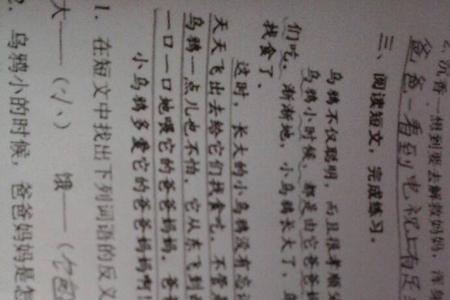 2. 沉香一想到要去解救妈妈，浑身
爸爸一看到电视上有足
三、阅读短文，完成练习。
乌鸦不仅聪明，而且很孝顺
乌鸦小时候，都是由它爸爸
们吃。渐渐地，小乌鸦长大了，
找食了。
这时，长大的小乌鸦没有忘记
天天飞出去给它们找食吃。不管
乌鸦一点儿也不怕。它从东飞到
一口一口地喂它的爸爸妈妈。爸
小乌鸦多爱它的爸爸妈妈啊！
1. 在短文中找出下列词语的反义
大——（小） 饿——（饱
2. 乌鸦小的时候，爸爸妈妈是怎